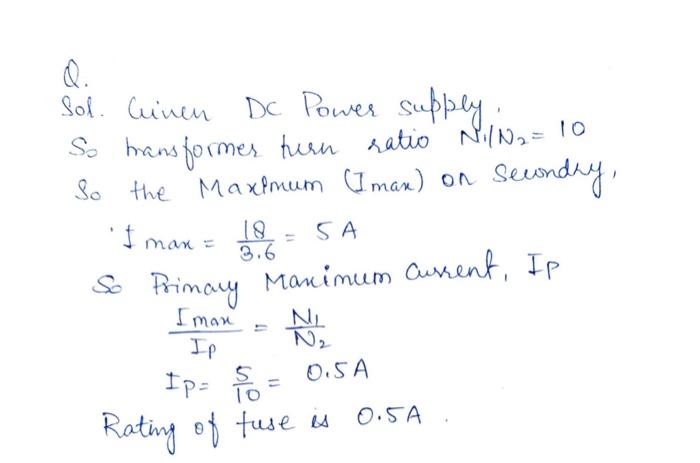 Q.
Sol. Given DC Power supply.
So transformer turn ratio N₁/N₂ = 10
So the Maximum (Imax) on Secondry,
I max = 18/3.6 = 5 A
So Primary Maximum Current, Ip
Imax/Ip = N₁/N₂
Ip = 5/10 = 0.5A
Rating of fuse is 0.5A.